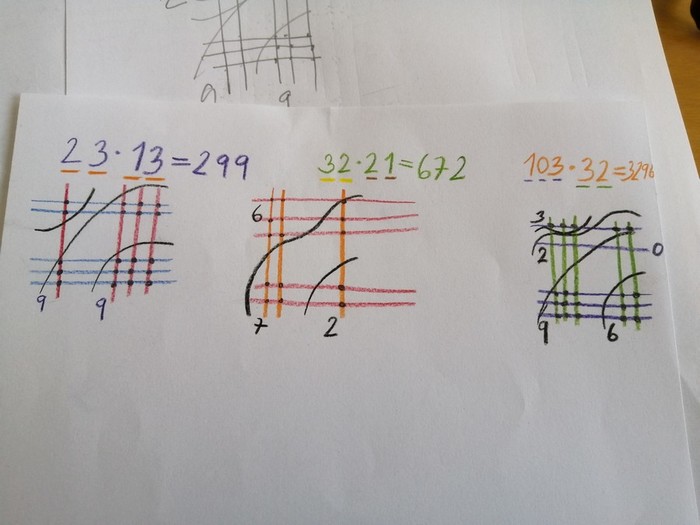 9 9
23·13=299
9 9
32·21=672
6
7 2
103·32=3296
3
2 0
9 6